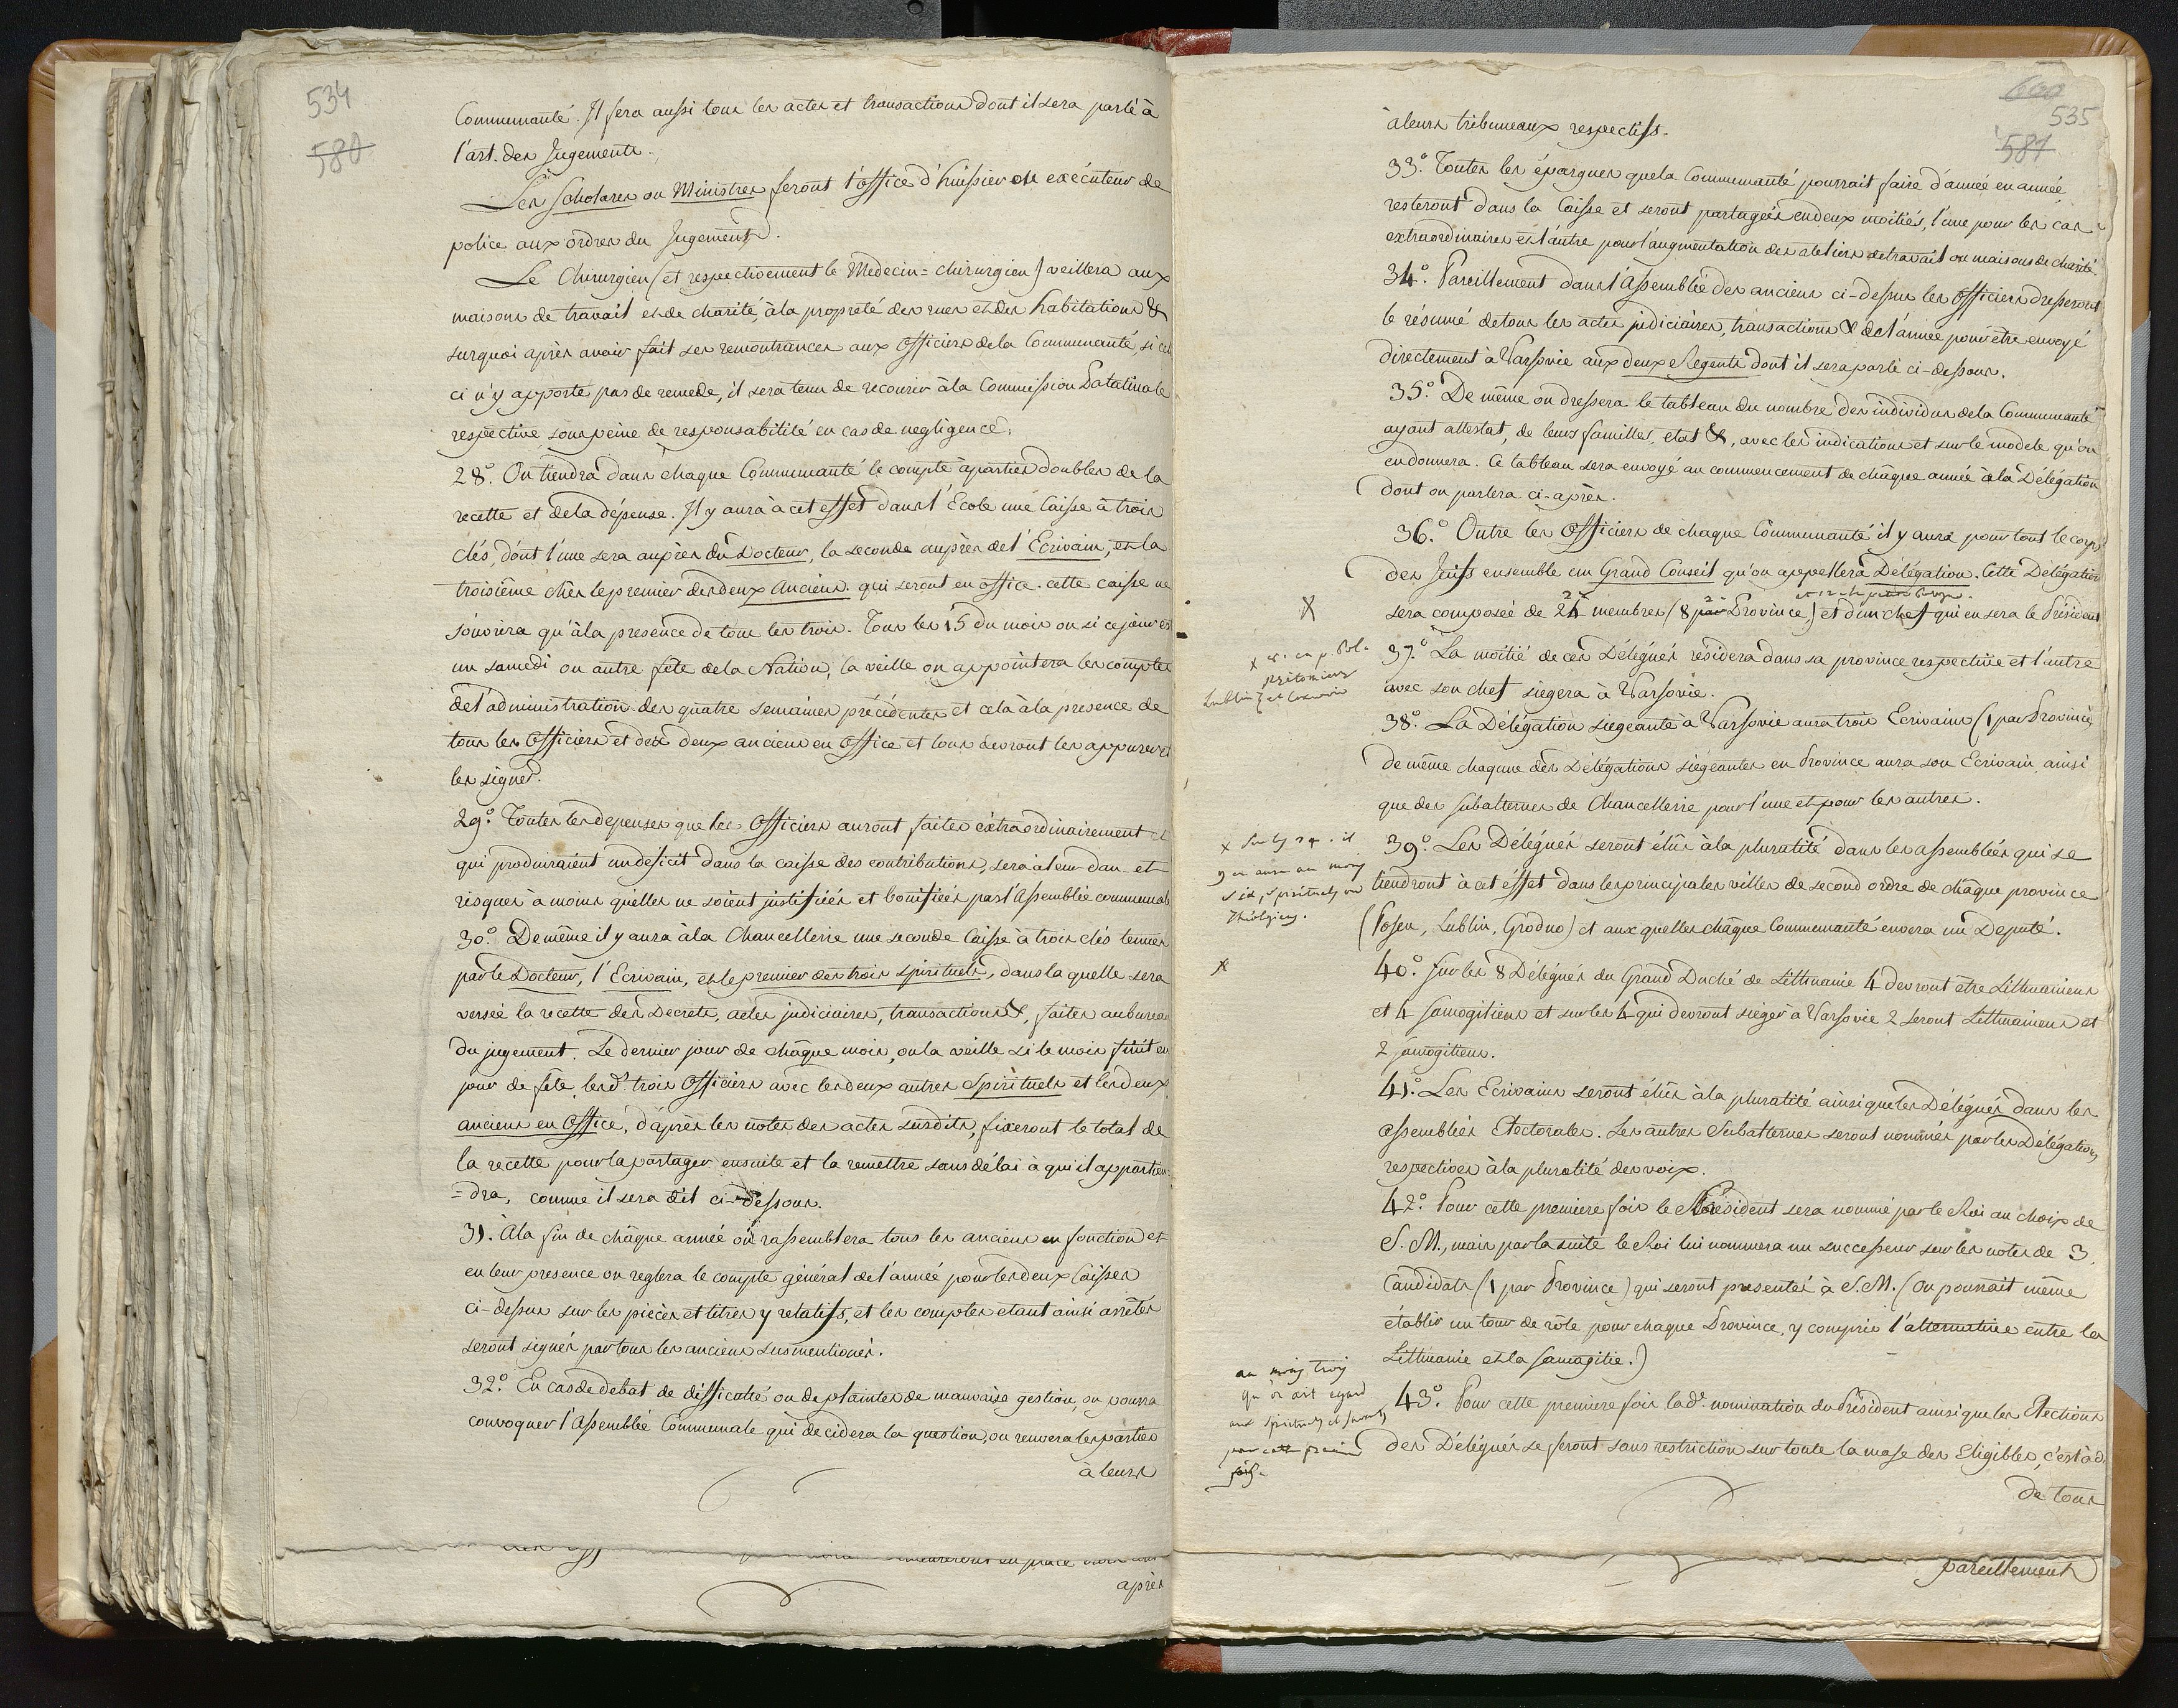 534
580
Communauté. Il fera aussi tous les actes et transactions dont il sera parlé à
l'art. des Jugements.
Les Scholares ou Ministres feront l'office d'huissier ou exécuteur de
police aux ordres du Jugement.
Le Chirurgien (et respectivement le Medecin=chirurgien) veillera aux
maisons de travail et de charité, à la propreté des rues et des habitations &
surquoi après avoir fait ses remontrances aux Officiers de la Communauté, si ceux
ci n'y apporte pas de remede, il sera tenu de recourir à la Commission Palatinale
respective, sous peine de responsabilité en cas de negligence.
28.° On tiendra dans chaque Communauté le compte à parties doubles de la
recette et de la dépense. Il y aura à cet effet dans l'Ecole une Caisse à trois
clés, dont l'une sera auprès du Docteur, la seconde auprès de l'Ecrivain, et la
troisième chès le premier des deux Anciens qui seront en office. cette caisse ne
s'ouvrira qu'à la presence de tous les trois. Tous les 15 du mois ou si ce jour est
un samedi ou autre fête de la Nation, la veille on appointera les comptes
de l'administration des quatre semaines précédentes et cela à la presence de
tous les Officiers et des deux anciens en Office et tous devront les appurer et
les signer.
29.° Toutes les depenses que les Officiers auront faites extraordinairement et
qui produiraient un deficit dans la caisse des contributions, sera à leur dan et
risques à moins qu'elles ne soient justifiées et bonifiées par l'Assemblée communale
30.° De même il y aura à la Chancellerie une seconde Caisse à trois clés tenues
par le Docteur, l'Ecrivain, et le premier des trois spirituels, dans la quelle sera
versée la recette des Decrets, actes judiciaires, transactions &, faites au bureau
du jugement. Le dernier jour de châque mois, ou la veille si le mois finit en
jour de fête, lesd.s trois Officiers avec les deux autres Spirituels et les deux
anciens en Office, d'après les notes des actes susdits, fixeront le total de
la recette pour la partager ensuite et la remettre sans délai à qui il appartien
=dra, comme il sera dit ci-dessous.
31. A la fin de châque année on rassemblera tous les anciens en fonction et
en leur presence on reglera le compte général de l'année pour les deux Caisses
ci-dessus sur les pièces et titres y relatifs, et les comptes etant ainsi arrêtés
seront signés par tous les anciens susmentionés.
32.° En cas de debat de difficulté ou de plaintes de mauvaise gestion, on pourra
convoquer l'Assemblée Communale qui decidera la question, ou renvera les parties
à leurs
en place
après
600
535
587
à leurs tribuneaux respectifs.
33.° Toutes les épargnes que la Communauté pourrait faire d'année en année
resteront dans la Caisse et seront partagées en deux moitiés, l'une pour les cas
extraordinaires et l'autre pour l'augmentation des ateliers de travail ou maisons de charité.
34.° Pareillement dans l'Assemblée des anciens ci-dessus les Officiers dresseront
le résumé de tous les actes judiciaires, transactions & de l'année pour être envoyé
directement à Varsovie aux deux Regents dont il sera parlé ci-dessous.
35.° De même on dressera le tableau du nombre des individus de la Communauté
ayant attestat, de leurs familles, etat &, avec les indications et sur le modele qu'on
en donnera. Ce tableau sera envoyé au commencement de châque année à la Délégation
dont on parlera ci-après.
36.° Outre les Officiers de chaque Communauté il y aura pour tout le corps
des Juifs ensemble un Grand Conseil qu'on appellera Délégation. Cette Délégation
X
sera composée de 24 membres (8 par Province,) et d'un chef qui en sera le Président
37.° La moitié de ces Délégués résidera dans sa province respective et l'autre
avec son chef siegera à Varsovie.
Lublin
38.° La Délégation siegeante à Varsovie aura trois Ecrivains (1 par Province)
de même chaqune des Délégations siégeantes en Province aura son Ecrivain, ainsi
que des subalternes de Chancellerie pour l'une et pour les autres.
x Sur les 24. il
y en aura au moins
six spirituels ou
Théologiens.
39.° Les Délégués seront élûs à la pluralité dans les assemblées qui se
tiendront à cet effet dans les principales villes de second ordre de châque province
(Posen, Lublin, Grodno) et aux quelles châque Communauté envera un Deputé.
x
40.° Sur les 8 Délégués du Grand Duché de Litthuanie 4 devront être Litthuaniens
et 4 Samogitiens et sur les 4 qui devront sieger à Varsovie 2 seront Litthuaniens et
2 Samogitiens.
41.° Les Ecrivains seront élûs à la pluralité ainsi que les Délégués dans les
assemblées Electorales. Les autres Subalternes seront nommés par les Délégations
respectives à la pluralité des voix.
42.° Pour cette premiere fois le Président sera nommé par le Roi au choix de
S. M., mais par la suite le Roi lui nommera un successeur sur les notes de 3.
Candidats (1 par Province) qui seront presentés à S. M. (On pourrait même
établir un tour de rôle pour chaque Province, y compris l'alternative entre la
Litthuanie et la Samogitie.)
au moins trois
qu'on ait egard
aux spirituels et savants
pour cette premiere
fois.
43.° Pour cette premiere fois lad.e nomination du Président ainsi que les Elections
des Délégués se feront sans restriction sur toute la mase des Eligibles, c'est à d.
de tous
pareillement